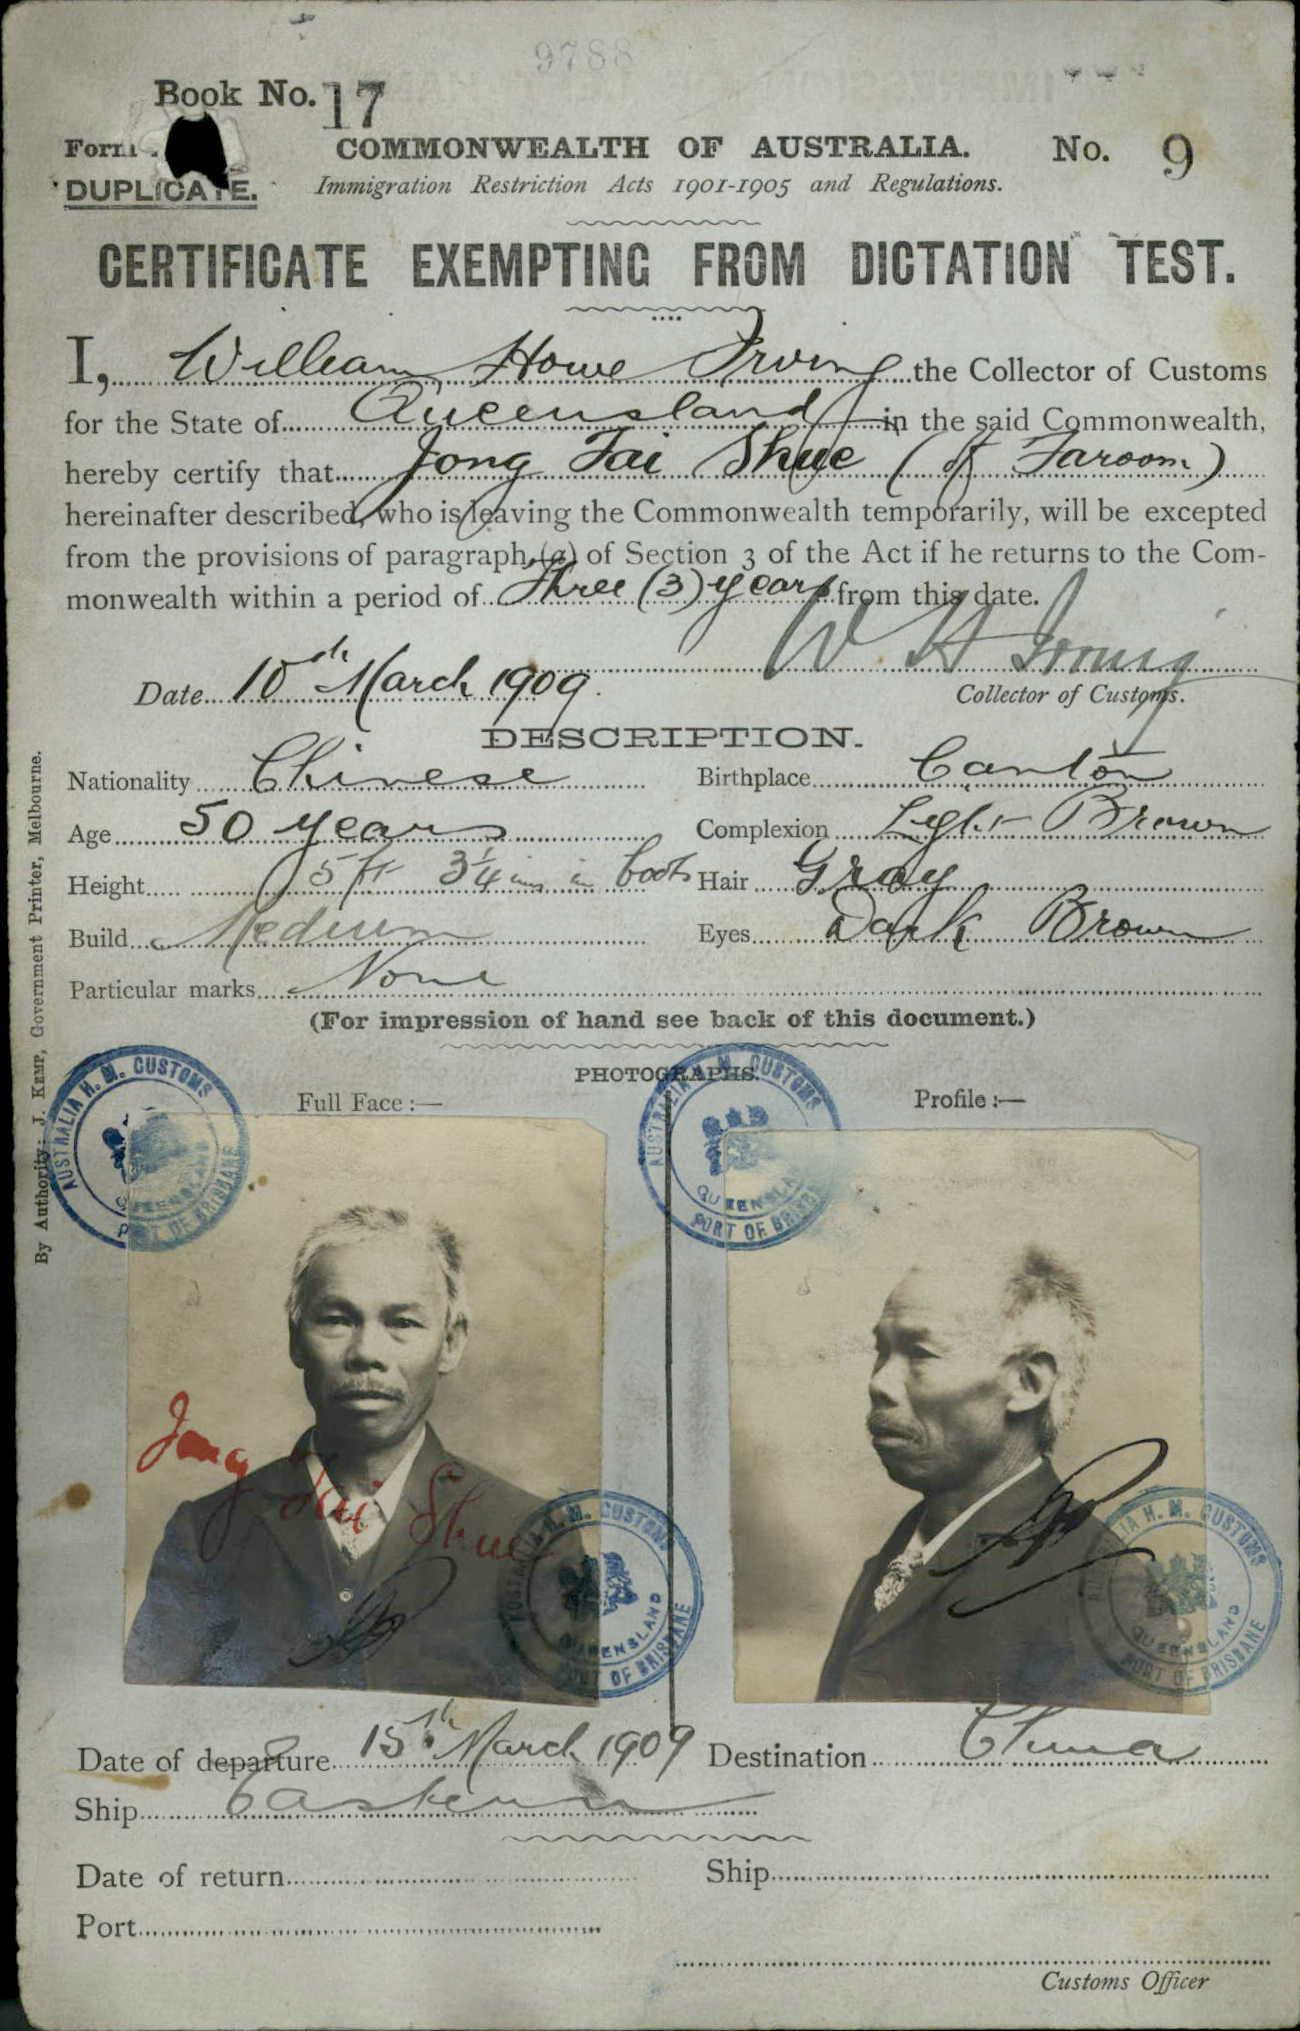 9788
Book No. 17
Form
DUPLICATE.
COMMONWEALTH OF AUSTRALIA.
No. 9
Immigration Restriction Acts 1901-1905 and Regulations.
CERTIFICATE EXEMPTING FROM DICTATION TEST.
I, William Howe Irving the Collector of Customs
for the State of Queensland in the said Commonwealth,
hereby certify that Jong Tai Shue (of Taroom)
hereinafter described, who is leaving the Commonwealth temporarily, will be excepted
from the provisions of paragraph (a) of Section 3 of the Act if he returns to the Com-
monwealth within a period of Three (3) years from this date.
W H Irving
Date 10th March 1909.
Collector of Customs.
DESCRIPTION.
Nationality Chinese
Birthplace Canton
Age 50 years
Complexion Light Brown
Height 5 ft 3 1/4 ins in boots
Hair Gray
Build Medium
Eyes Dark Brown
Particular marks None
(For impression of hand see back of this document.)
PHOTOGRAPHS.
Full Face :—
Profile :—
AUSTRALIA H. M. CUSTOMS QUEENSLAND PORT OF BRISBANE
AUSTRALIA H. M. CUSTOMS QUEENSLAND PORT OF BRISBANE
Jong Tai Shue
AUSTRALIA H. M. CUSTOMS QUEENSLAND PORT OF BRISBANE
AUSTRALIA H. M. CUSTOMS QUEENSLAND PORT OF BRISBANE
Date of departure 15th March 1909
Destination China
Ship Eastern
Date of return
Ship
Port
Customs Officer
By Authority: J. KEMP, Government Printer, Melbourne.